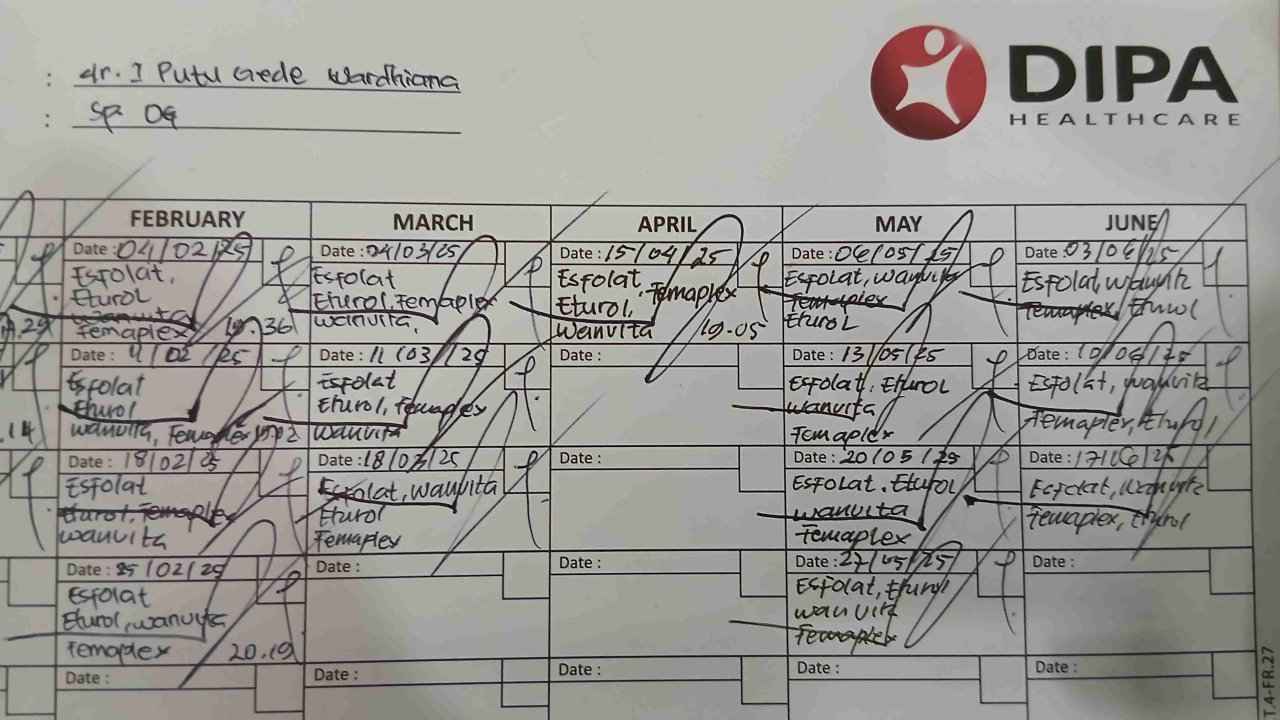 : dr. I Putu Gede Wardhiana
: Sp. OG
DIPA
HEALTHCARE
FEBRUARY
MARCH
APRIL
MAY
JUNE
Date : 04/02/25
Esfolat,
Eturol
wanvita
Femaplex 19.36
Date : 04/03/25
Esfolat
Eturol, Femaplex
wanvita,
Date : 15/04/25
Esfolat, Femaplex
Eturol
wanvita 19.05
Date : 06/05/25
Esfolat, wanvita
Femaplex
Eturol
Date : 03/06/25
Esfolat, wanvita
Femaplex, Eturol
Date : 11/02/25
Esfolat
Eturol
wanvita, Femaplex
Date : 11/03/25
Esfolat
Eturol, Femaplex
wanvita
Date :
Date : 13/05/25
Esfolat, Eturol
wanvita
Femaplex
Date : 10/06/25
Esfolat, wanvita
Femaplex, Eturol
.14
Date : 18/02/25
Esfolat
Eturol, Femaplex
wanvita
Date : 18/03/25
Esfolat, wanvita
Eturol
Femaplex
Date :
Date : 20/05/25
Esfolat, Eturol
wanvita
Femaplex
Date : 17/06/25
Esfolat, wanvita
Femaplex, Eturol
Date : 25/02/25
Esfolat
Eturol, wanvita
Femaplex 20.19
Date :
Date :
Date : 27/05/25
Esfolat, Eturol
wanvita
Femaplex
Date :
Date :
Date :
Date :
Date :
Date :
T.4-FR.27